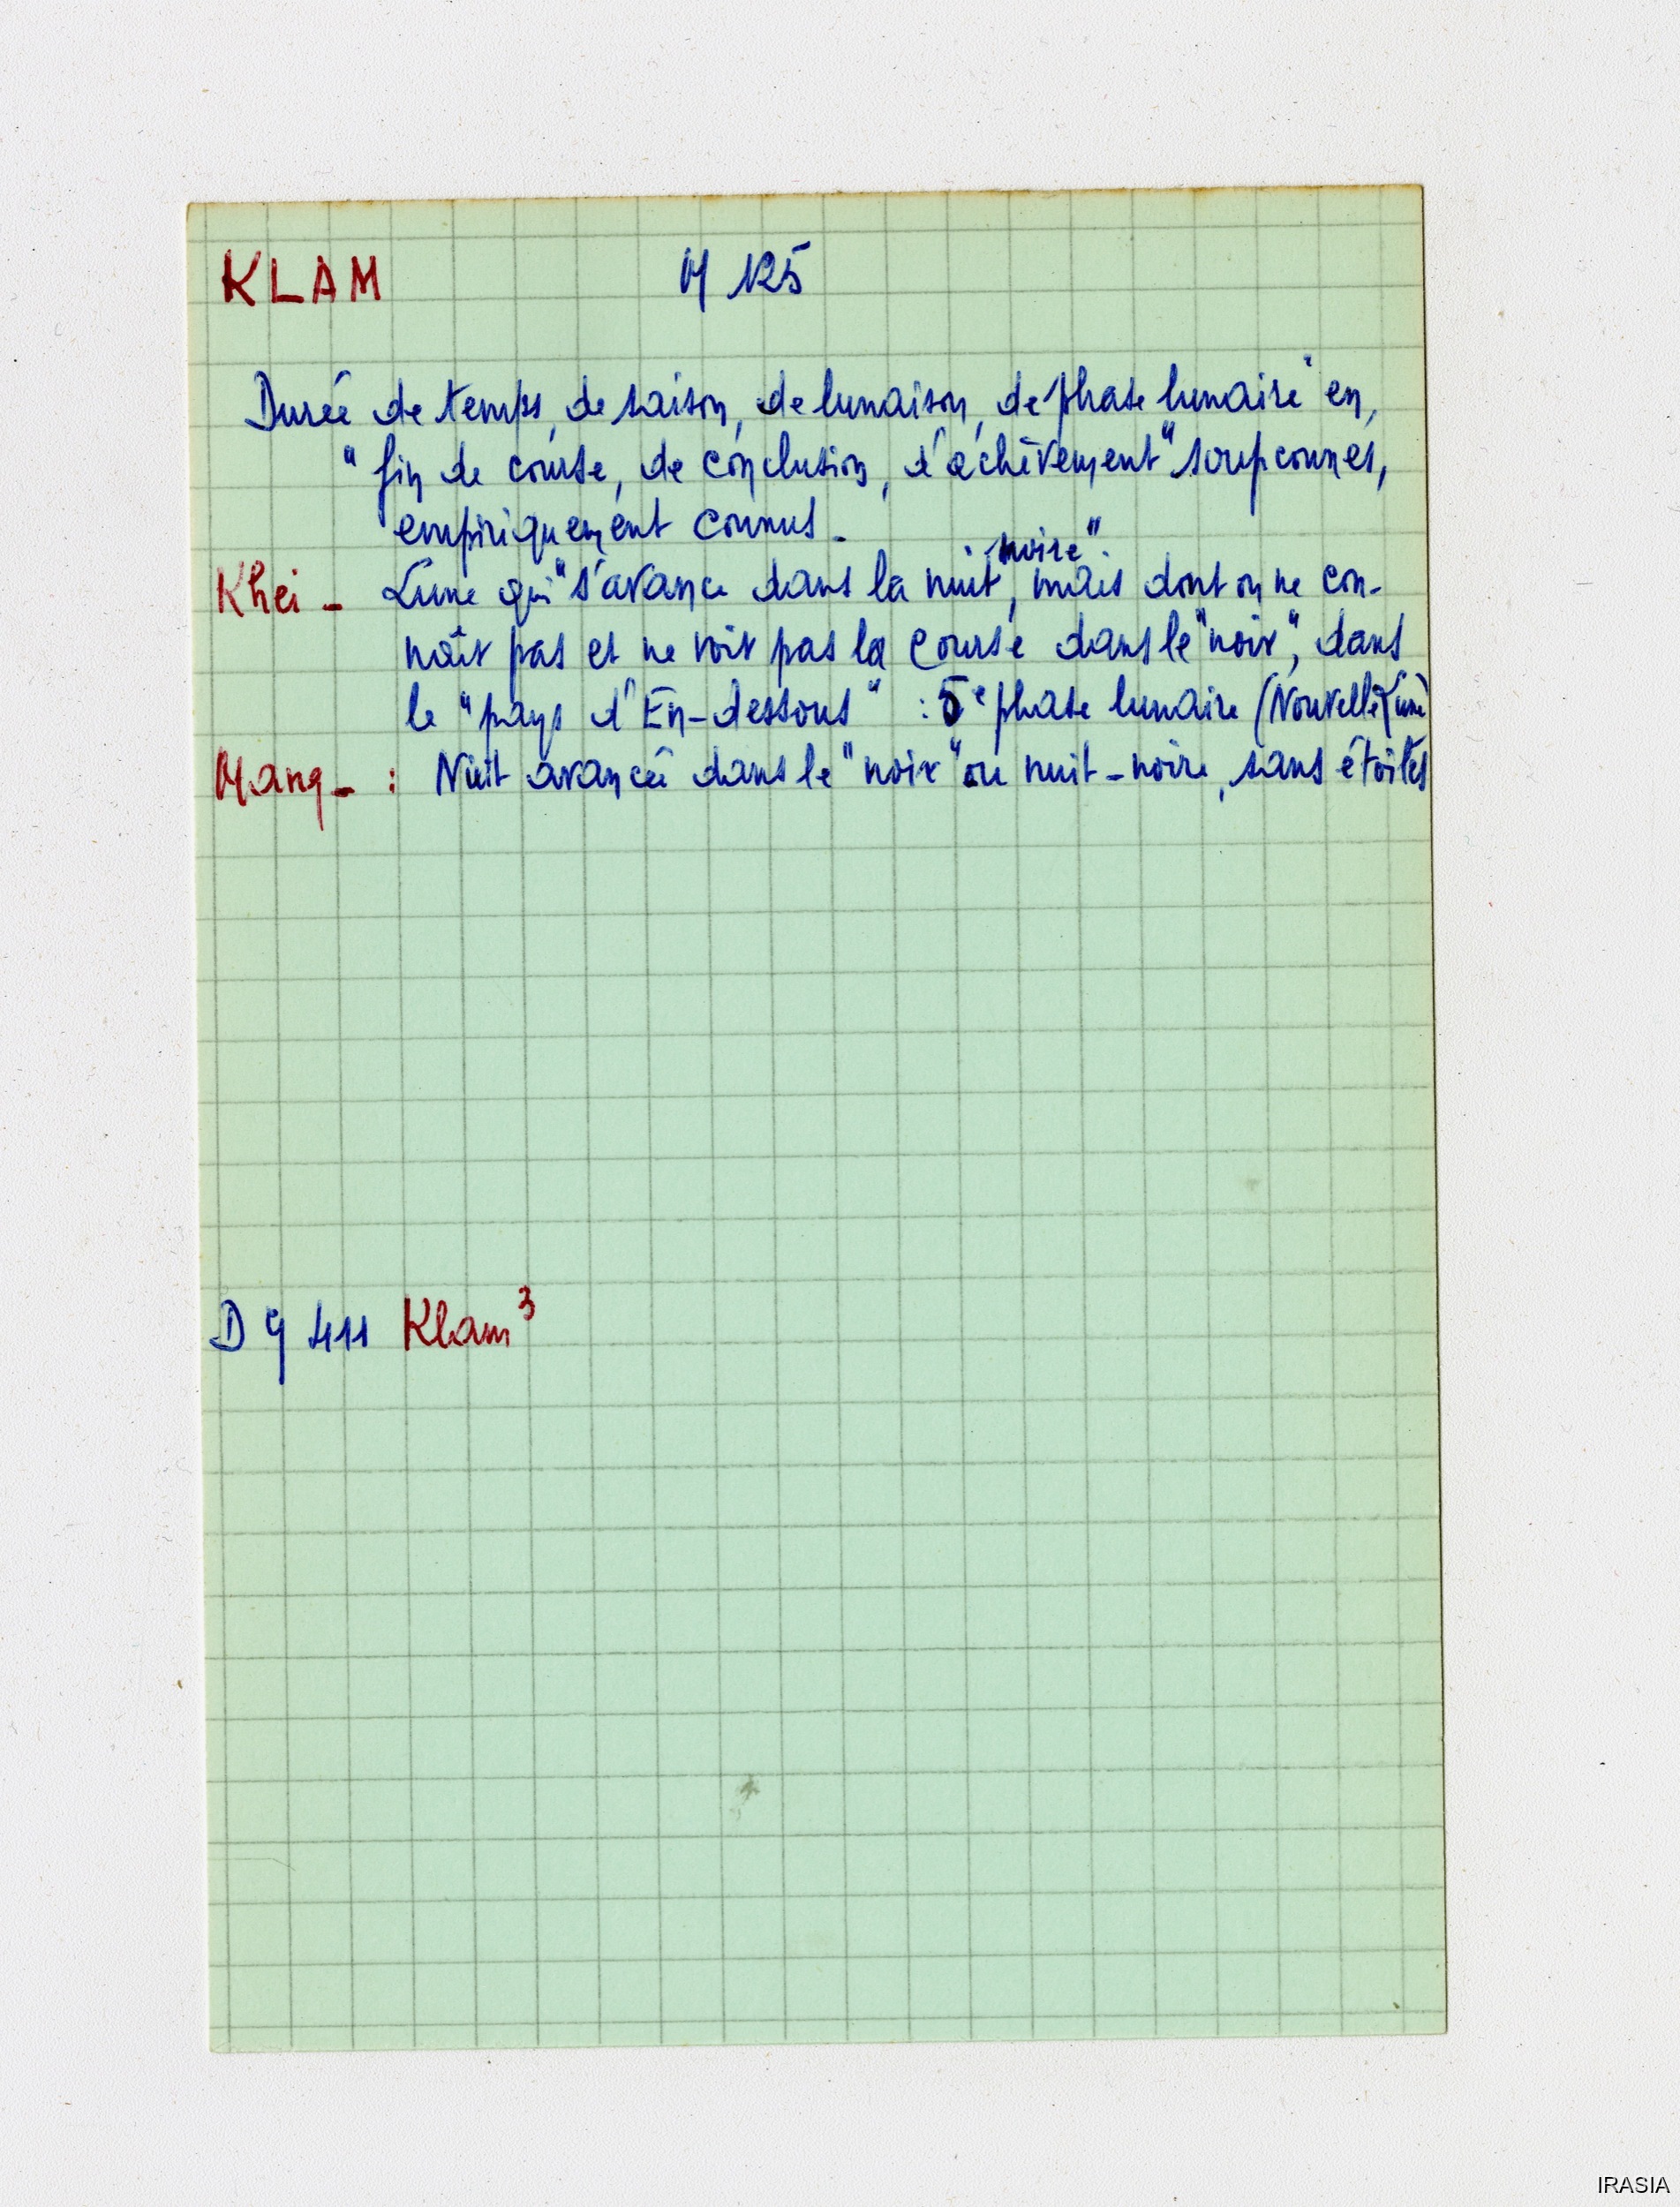 KLAM M 125
Durée de temps, de saison, de lunaison, de phase lunaire en,
" fin de course, de conclusion, d'achèvement" soupçonnes,
empiriquement connus.
noire".
Khei - Lune qui "s'avance dans la nuit, mais dont on ne con-
naît pas et ne voit pas la course dans le "noir", dans
le "pays d'En-dessous" : 5e phase lunaire (Nouvelle Lune)
Mang - : Nuit avancée dans le "noir" ou nuit-noire, sans étoiles
D 9 411 Klam³
IRASIA